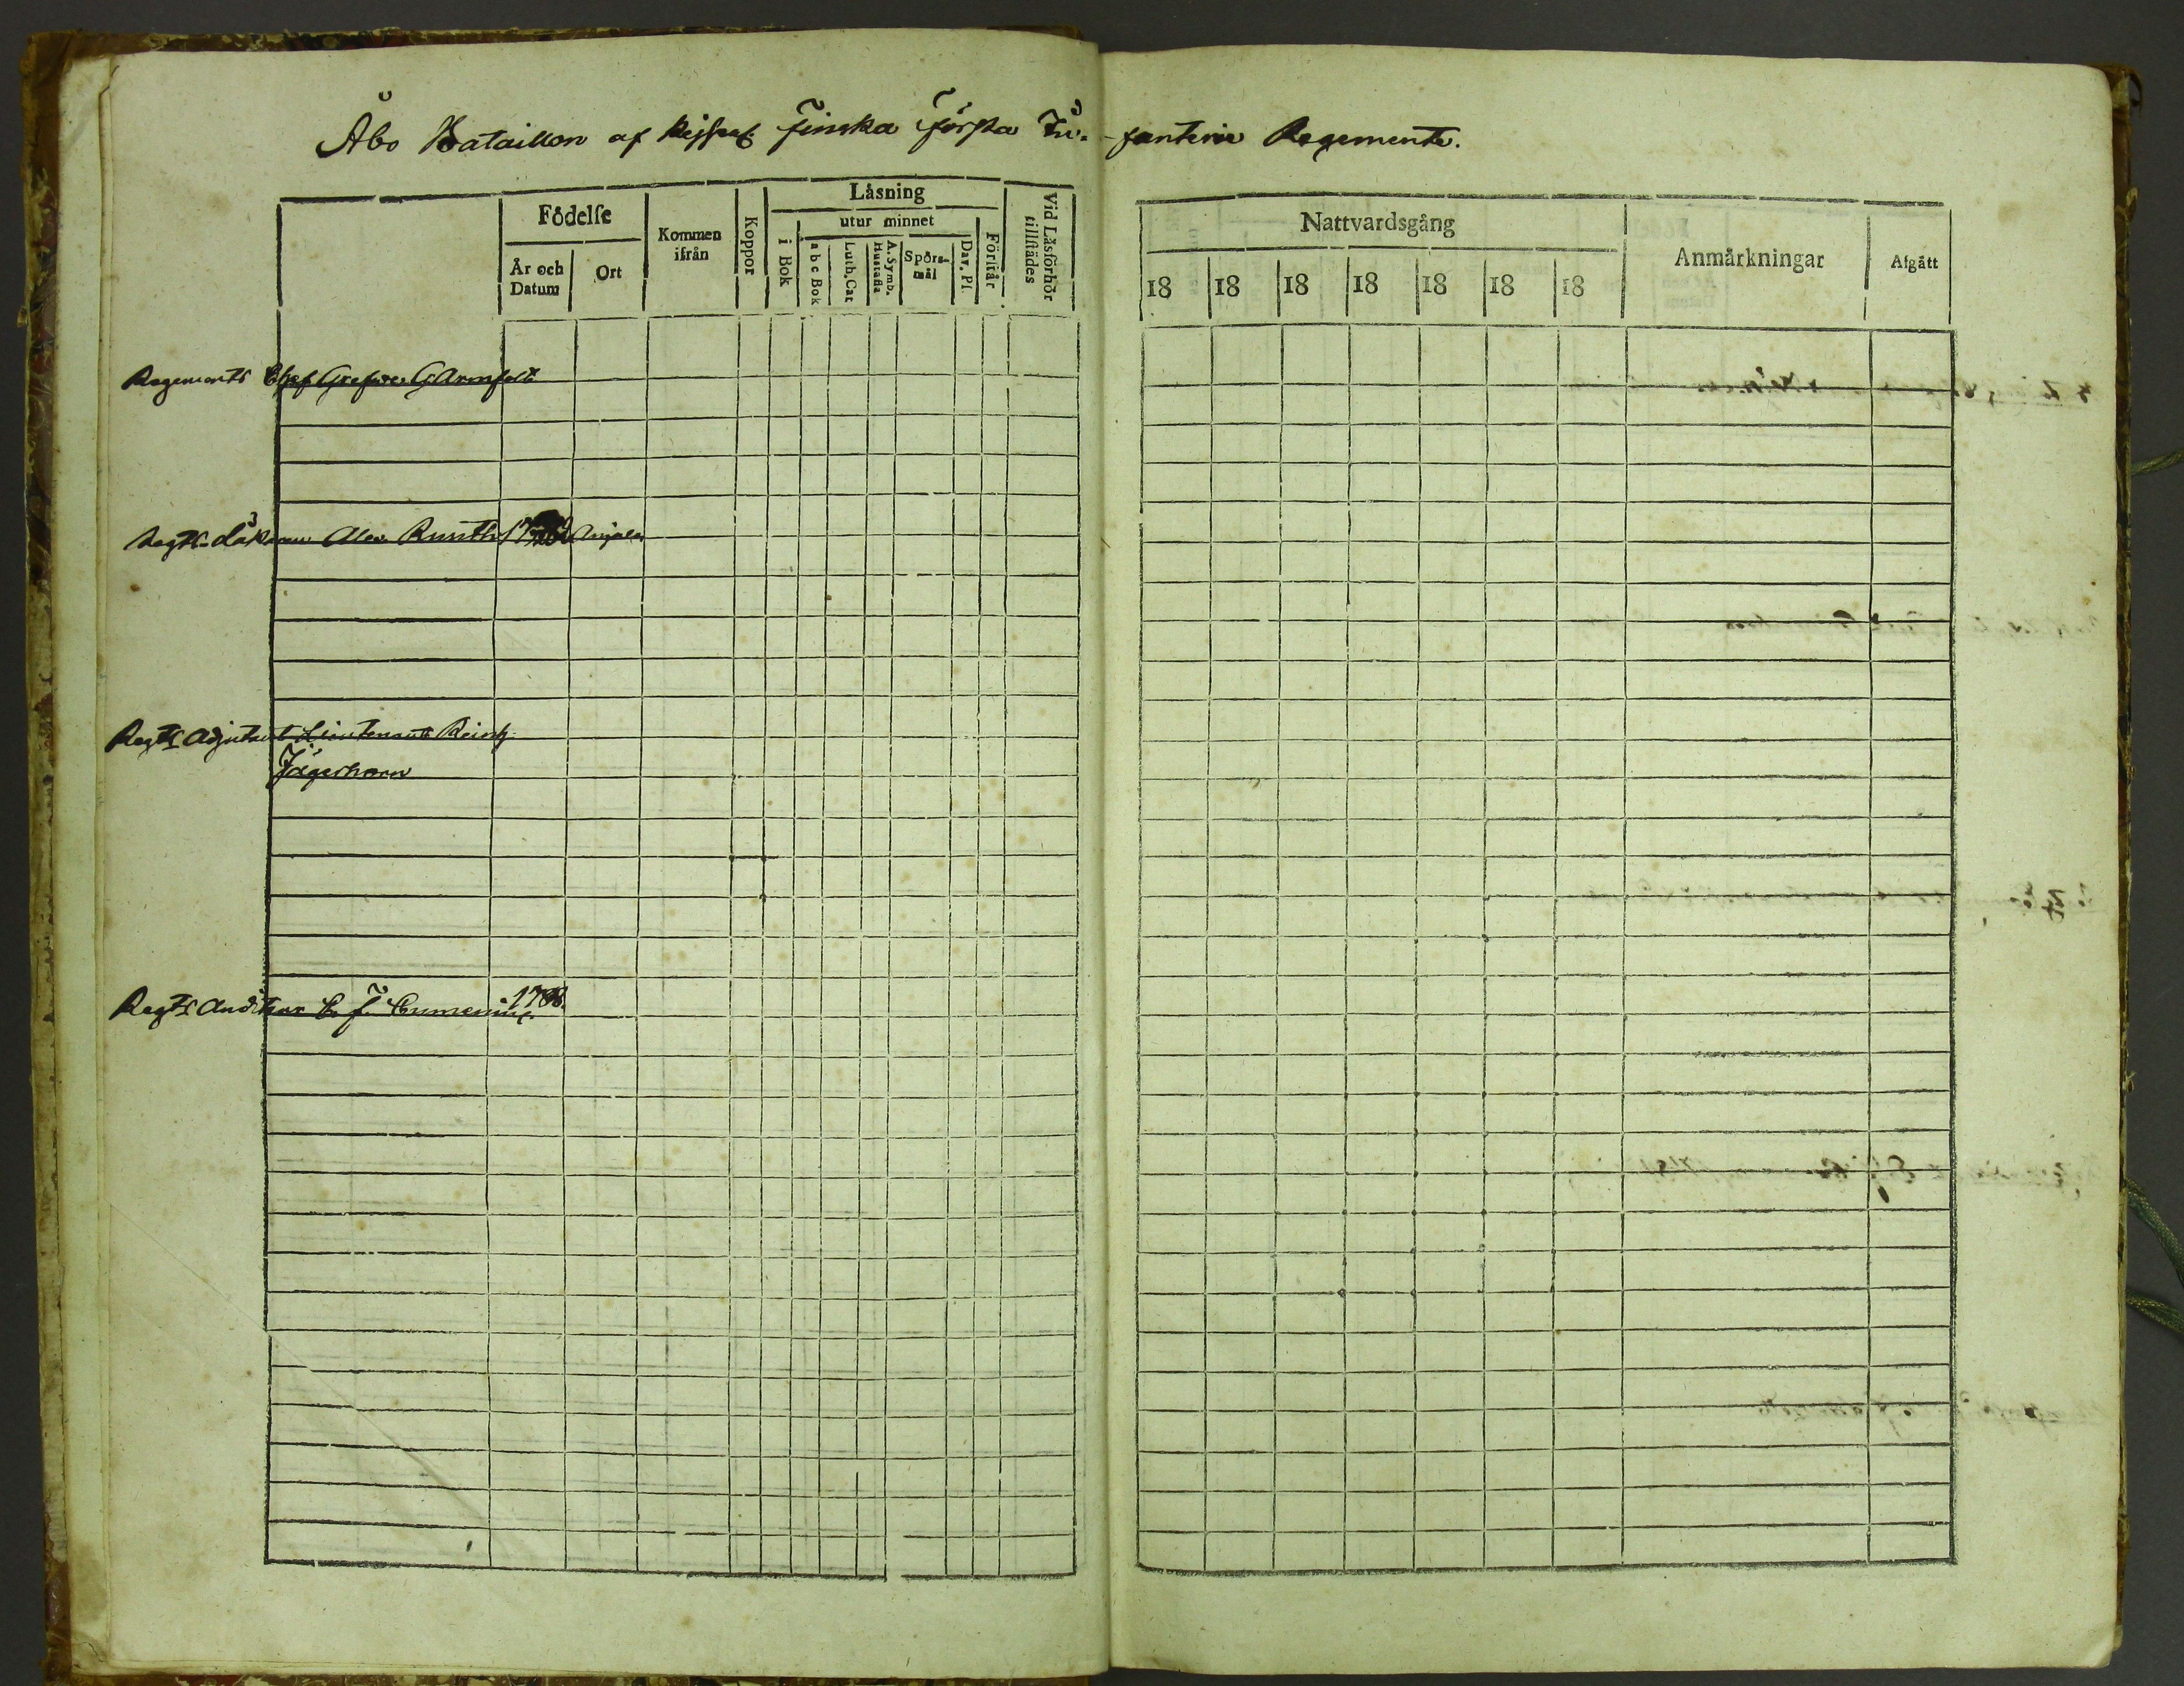 Åbo Bataillon af Kejserl. Finska Första In-fanterie Regemente.
Födelse
År och Datum
Ort
Kommen ifrån
Koppor
Läsning
i Bok
utur minnet
a b c Bok
Luth. Cat
A. Symb. Hustafla
Spörs-mål
Dav. Ps
Förstår
Vid Läsförhör tillstädes
Nattvardsgång
18 18 18 18 18 18 18
Anmärkningar
Afgått
Regements Chef Grefve G Armfelt
Regts Läkaren Alex. Runth Anjala
Regts Adjutant Lieutenant Reinh.
Jägerhorn
Regts Auditeur C. J. 1788.